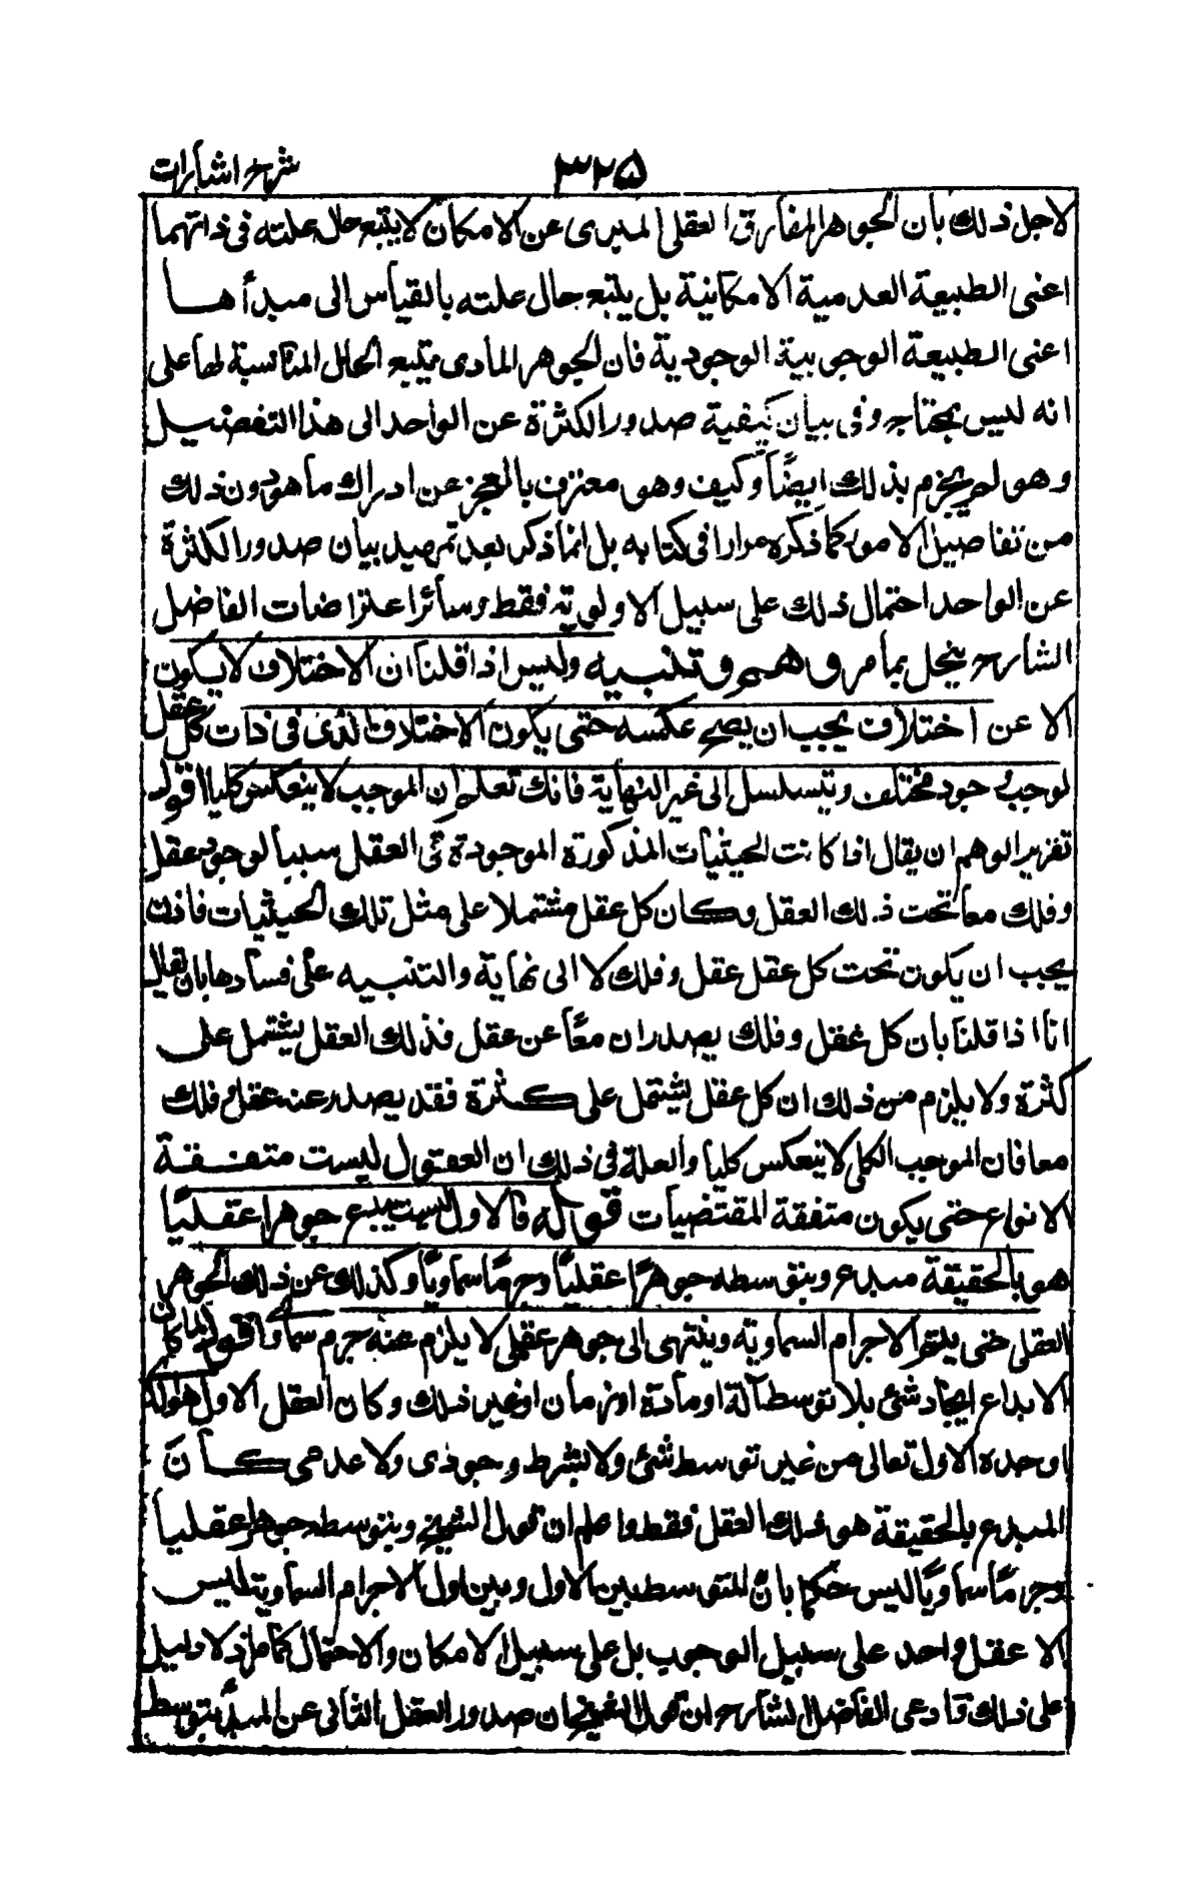 شرح اشارات
۳۲۵
لاجل ذلك بان الجوهر المفارق العقلى المبرى عن الامكان لا يتبع حال علته فى ذاتهما
اعنى الطبيعة العدمية الامكانية بل يتبع حال علته بالقياس الى مبدأها
اعنى الطبيعة الوجوبية الوجودية فان الجوهر المادى يتبع الحال المناسبة لها على
انه ليس بمحتاج فى بيان كيفية صدور الكثرة عن الواحد الى هذا التفصيل
وهو لم يجزم بذلك ايضًا وكيف وهو معترف بالعجز عن ادراك ما هو دون ذلك
من تفاصيل الامور كما ذكره مرارا فى كتابه بل انما ذكر بعد تمهيد بيان صدور الكثرة
عن الواحد احتمال ذلك على سبيل الاولوية فقط وسائر اعتراضات الفاضل
الشارح ينحل بما مر وهم وتنبيه وليس اذا قلنا ان الاختلاف لا يكون
الا عن اختلاف يجب ان يصح عكسه حتى يكون الاختلاف الذى فى ذات كل عقل
لوجب وجود مختلف ويتسلسل الى غير النهاية فانك تعلم ان الموجب لا ينعكس كليا اقول
تقرير الوهم ان يقال اذا كانت الحيثيات المذكورة الموجودة فى العقل سببا لوجود عقل
وفلك معا تحت ذلك العقل وكان كل عقل مشتملا على مثل تلك الحيثيات فاذن
يجب ان يكون تحت كل عقل عقل وفلك لا الى نهاية والتنبيه على فسادها بان يقال
انا اذا قلنا بان كل عقل وفلك يصدران معًا عن عقل فذلك العقل يشتمل على
كثرة ولا يلزم من ذلك ان كل عقل يشتمل على كثرة فقد يصدر عنه عقل وفلك
معا فان الموجب الكلى لا ينعكس كليا والعلة فى ذلك ان العقول ليست متفقة
الانواع حتى يكون متفقة المقتضيات قوله فالاول ليست يبدع جوهرا عقليًا
هو بالحقيقة مبدع وبتوسطه جوهرًا عقليًا وجرمًا سماويًا وكذلك عن ذلك الجوهر
العقلى حتى يلتئم الاجرام السماوية وينتهى الى جوهر عقلى لا يلزم عنه جرم سماوى اقول لما كان
الابداع ايجاد شئ بلا توسط آلة او مادة او زمان او غير ذلك وكان العقل الاول هو الذى
اوجده الاول تعالى من غير توسط شئ ولا بشرط وجودى ولا عدمى كان
المبدع بالحقيقة هو ذلك العقل فقط واعلم ان قول الشيخ وبتوسطه جوهرا عقليا
وجرمًا سماويًا ليس حكما بانّ المتوسط بين الاول وبين اول الاجرام السماوية ليس
الا عقل واحد على سبيل الوجوب بل على سبيل الامكان والاحتمال كما مر اذ لا دليل
على ذلك فادعى الفاضل الشارح ان قول الشيخ بان صدور العقل الثانى عن المبدأ بتوسط